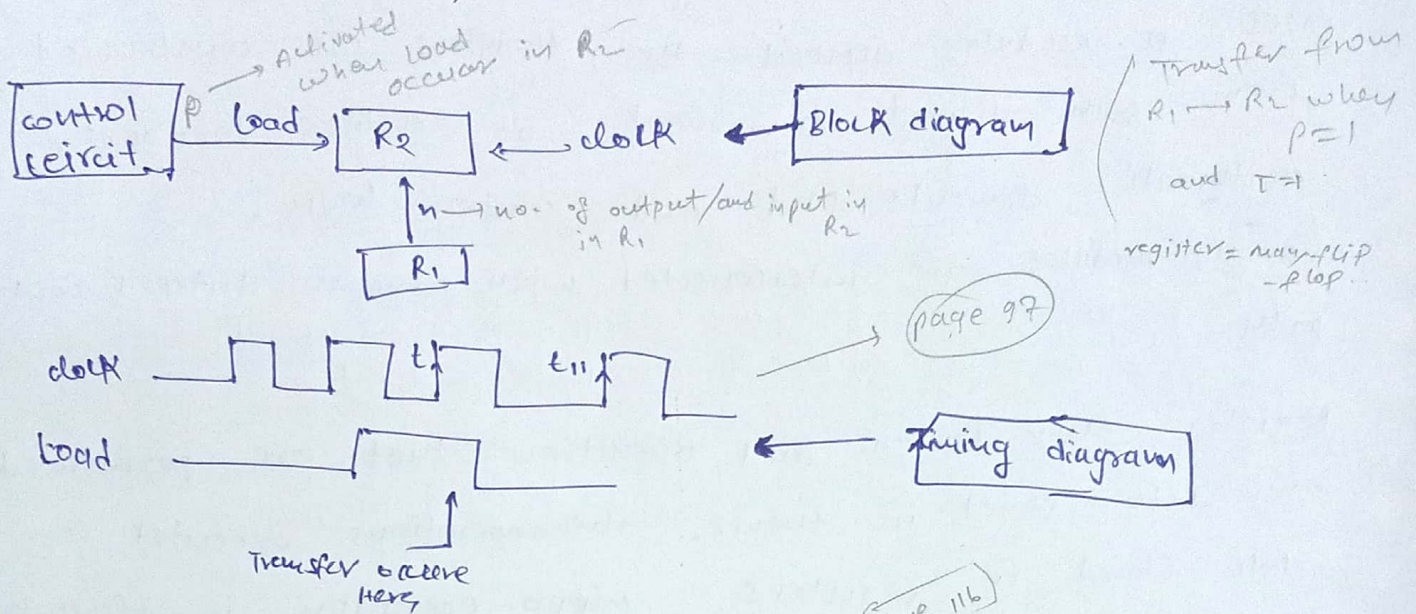 Activated
when load
occuar in R2
control
ceircit
P
Load
R2
clock
Block diagram
Transfer from
R1 → R2 when
P=1
and T=1
n → no. of output/and input in
in R1
R2
R1
register = many flip
-flop
page 97
clock
t
t11
Load
Timing diagram
Transfer occure
Here
116